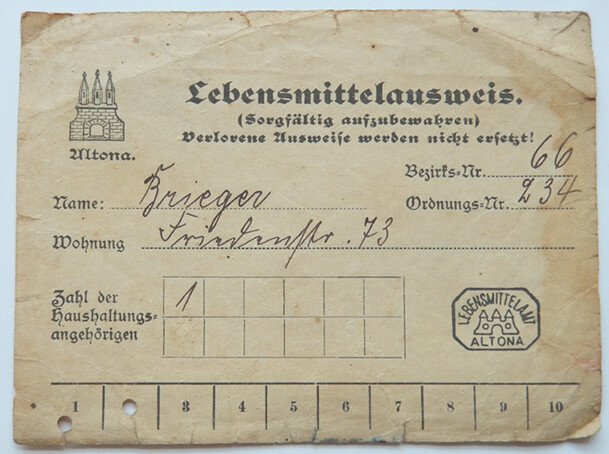 Lebensmittelausweis.
(Sorgfältig aufzubewahren)
Verlorene Ausweise werden nicht ersetzt!
Altona.
Bezirks-Nr. 66
Name: Brieger
Ordnungs-Nr. 234
Wohnung Friedenstr. 73
Zahl der
Haushaltungs-
angehörigen
1
LEBENSMITTELAMT
ALTONA
1 3 4 5 6 7 8 9 10